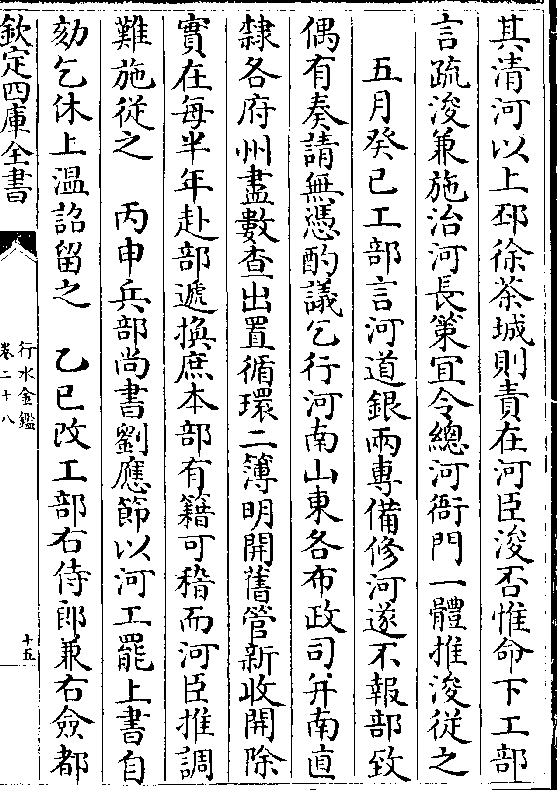 其清河以上邳徐茶城則責在河臣浚否惟命下工部
言疏浚兼施治河長策宜令總河衙門一體推浚從之
五月癸巳工部言河道銀兩専備修河遂不報部致
偶有奏請無憑酌議乞行河南山東各布政司并南直
隸各府州盡數查出置循環二簿明開舊管新收開除
實在每半年赴部遞換庶本部有籍可稽而河臣推調
難施從之　丙申兵部尚書劉應節以河工罷上書自
劾乞休上温詔留之　乙巳改工部右侍郎兼右僉都
欽定四庫全書
行水金鑑
卷二十八
十五